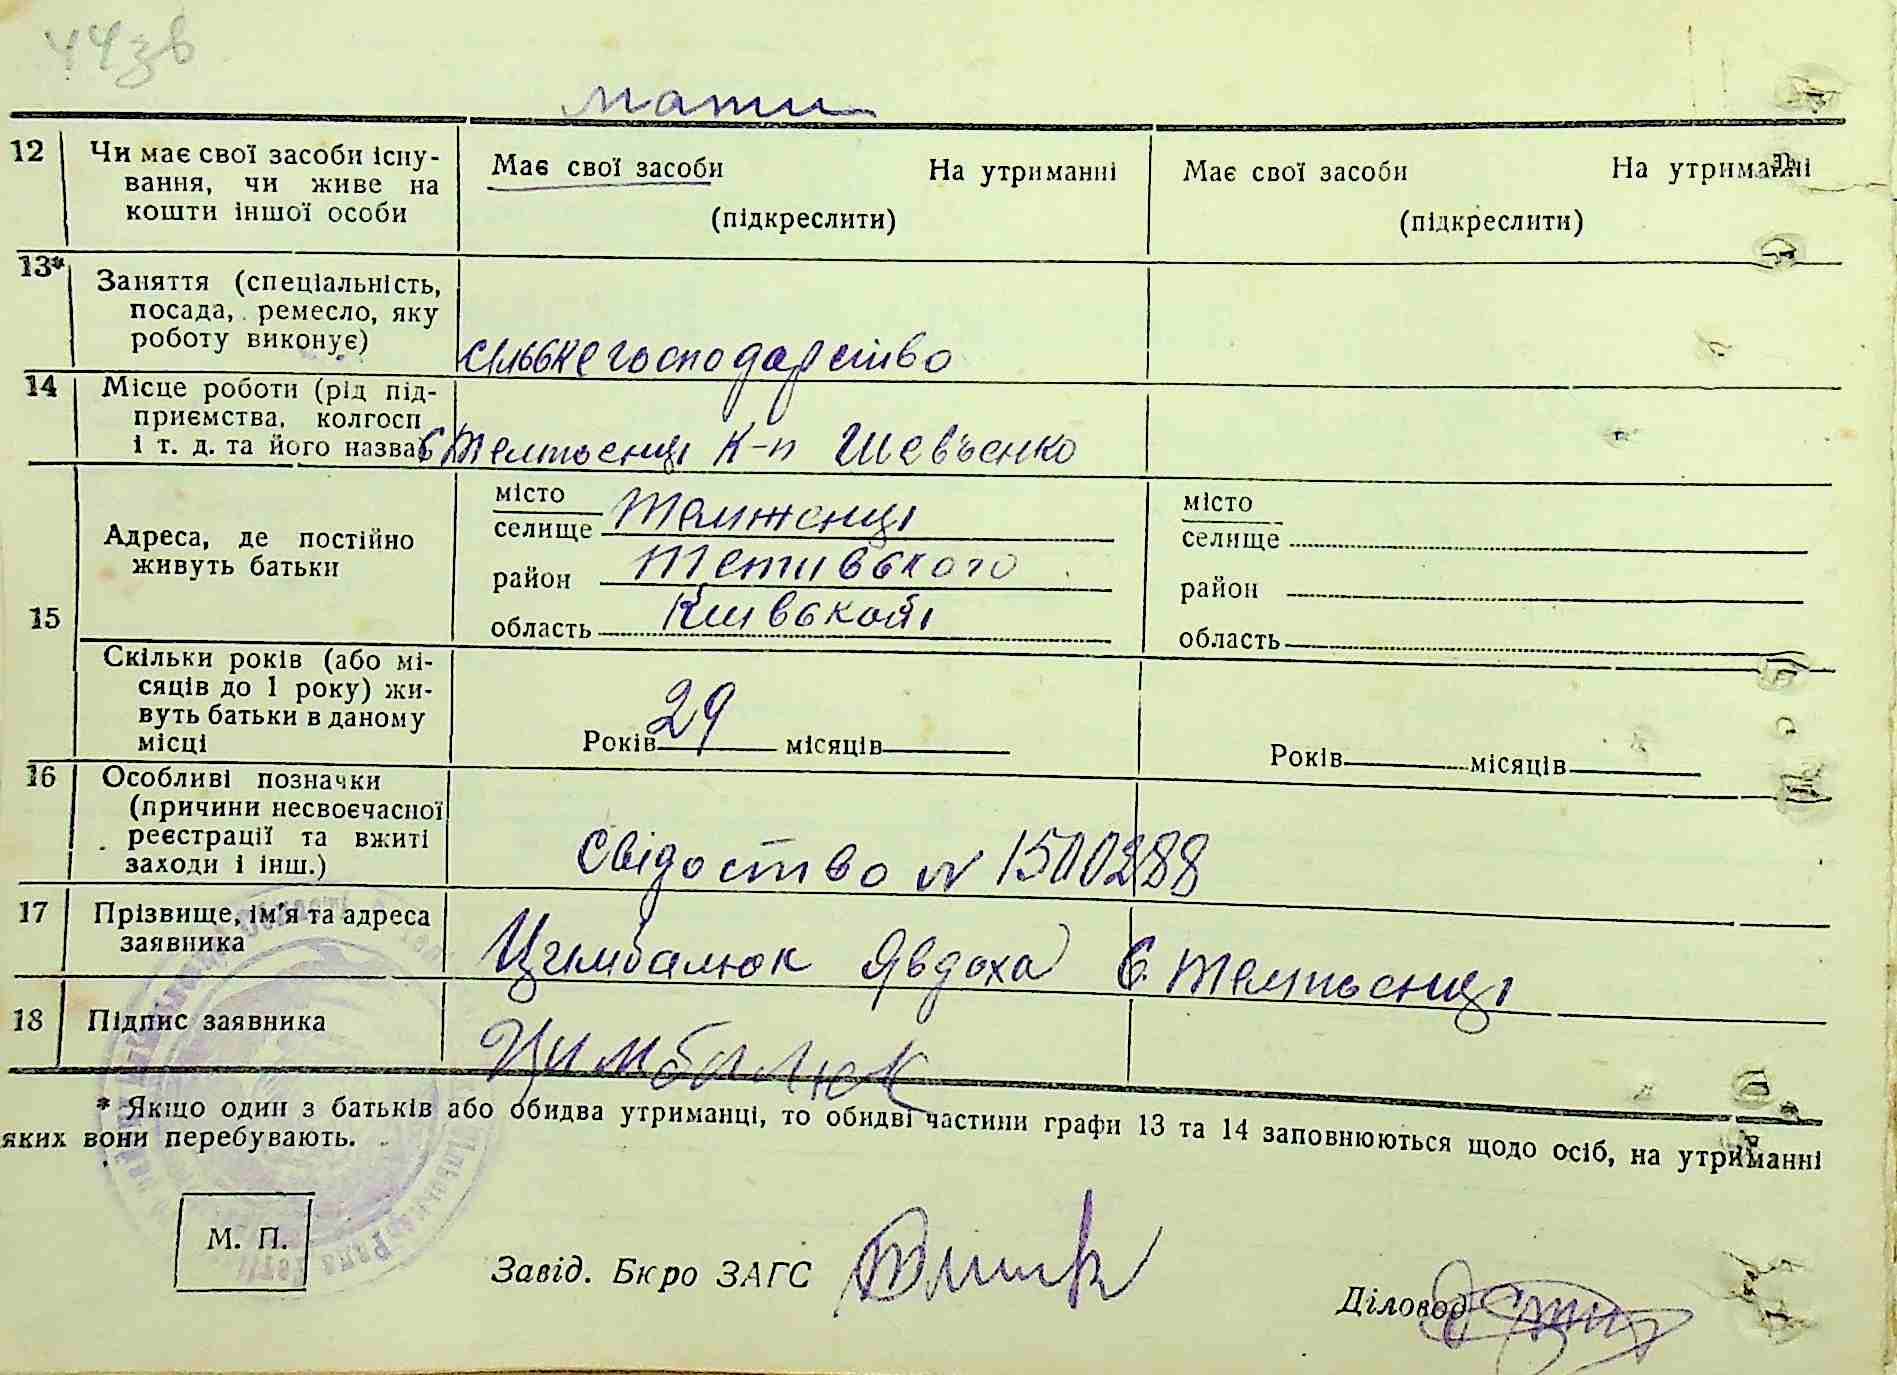 44зв
мати
12 Чи має свої засоби існу-
вання, чи живе на
кошти іншої особи
Має свої засоби На утриманні
(підкреслити)
Має свої засоби На утриманні
(підкреслити)
13* Заняття (спеціальність,
посада, ремесло, яку
роботу виконує)
сільське господарство
14 Місце роботи (рід під-
приємства, колгосп
і т. д. та його назва)
К-п Шевченко
15 Адреса, де постійно
живуть батьки
місто
селище
район Тетивського
область Київської
місто
селище
район
область
Скільки років (або мі-
сяців до 1 року) жи-
вуть батьки в даному
місці
Років 29 місяців
Років місяців
16 Особливі позначки
(причини несвоєчасної
реєстрації та вжиті
заходи і інш.)
Свідоство N 1500288
17 Прізвище, ім'я та адреса
заявника
Цимбалюк Явдоха с.
18 Підпис заявника
Цимбалюк
* Якщо один з батьків або обидва утриманці, то обидві частини графи 13 та 14 заповнюються щодо осіб, на утриманні
яких вони перебувають.
М. П.
Завід. Бюро ЗАГС
Діловод